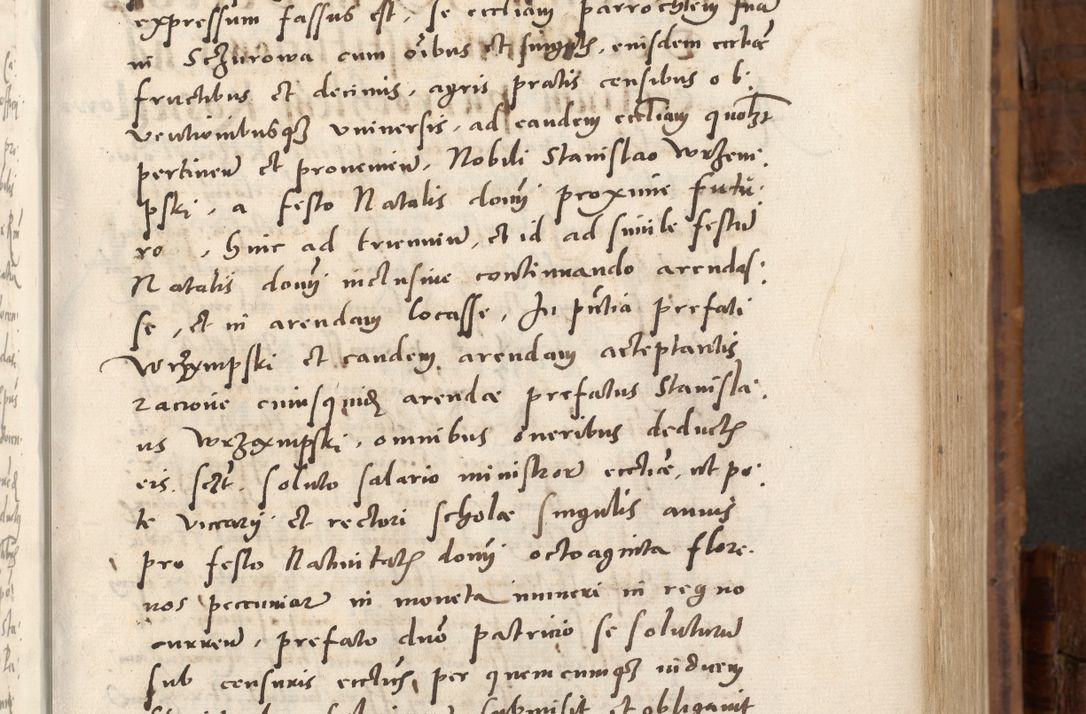 expressum fassus est, se eccliam parrochlem sua
in Sczurowa cum oibus et singulis, eiusdem eccliae
fructibus et decimis, agris pratis censibus ob:
ventionibusq3 vniuersis, ad eandem eccliam quolzt
pertinen et prouenien, Nobili Stanislao Wrzem:
pski, a festo Natalis domj proxime futu:
ro, hinc ad trienniu, et id ad simile festu
Natalis domj inclusiue continuando arendas:
se, et in arendam locasse, In pntia prefati
Wrzxmpski et eandem arendam acceptantis
racione cuiusquidz arendae prefatus Stanisla:
us Wrzxmpski, omnibus oneribus deductis
eis. sczt. soluto salario ministror eccliae, ut po:
te viccarij et rectori scholae singulis annis
pro festo Natiuitatis domj octoaginta flore:
nos peccuniar in moneta numeri in regno
curren, prefato dno patricio se soluturu
sub censuris ecclis, per quemcumq3 iudicem
submisit et obligauit